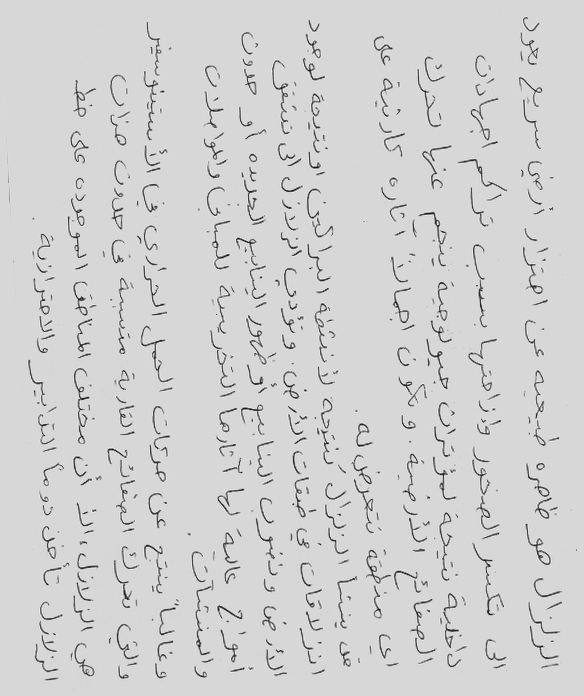 الزلزال هو ظاهره طبيعيه عن اهتزاز أرضي سريع يعود
الى تكسر الصخور وازاحتها بسبب تراكم اجهادات
داخلية نتيجة لمؤثرات جيولوجية ينجم عنها تحرك
الصفائح الأرضية. وتكون اجمالاً اثاره كارثية على
اي منطقة تتعرض له.
قد ينشأ الزلزال كنتيجة لأنشطة البراكين اونتيجة لوجود
انزلاقات في طبقات الأرض وتؤدي الزلازل الى تشقق
الأرض ونضوب الينابيع أو ظهور الينابيع الجديده أو حدوث
أمواج عالية لها آثارها التخريبية للمباني والمواصلات
والمنشآت.
وغالباً ينتج عن حركات الحمل الحراري في الأستينوسفير
والتي تحرك الصفائح القارية متسببة في حدوث هزات
هي الزلازل، الا أن مختلف المناطق الموجوده على خط
الزلازل تأخذ دوماً التدابير والاحترازية.